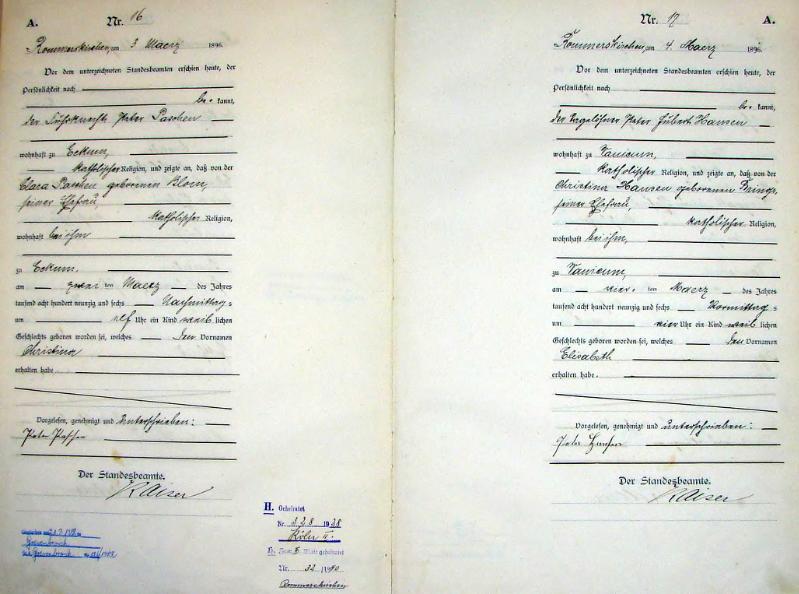 A.
Nr. 16
Rommerskirchen, am 3 Maerz 1896
Vor dem unterzeichneten Standesbeamten erschien heute, der
Persönlichkeit nach
be- kannt,
der Peter Paschen
wohnhaft zu Eckum,
katholischer Religion, und zeigte an, daß von der
Clara Paschen geborenen Blom,
seiner Ehefrau,
katholischer Religion,
wohnhaft bei ihm
zu Eckum,
am zwei ten Maerz des Jahres
tausend acht hundert neunzig und sechs Nachmittag-
um elf Uhr ein Kind weib lichen
Geschlechts geboren worden sei, welches den Vornamen
Christina
erhalten habe
Vorgelesen, genehmigt und unterschrieben:
Peter
Der Standesbeamte.
Kaiser
H. Geheiratet
Nr. 328 1938
Köln
Nr. 32 /1940
Rommerskirchen
Nr. 17
A.
Rommerskirchen, am 4 Maerz 189
Vor dem unterzeichneten Standesbeamten erschien heute, der
Persönlichkeit nach
be- kannt,
der Tagelöhner Peter Hubert Hansen
wohnhaft zu Vanicum,
katholischer Religion, und zeigte an, daß von der
Christina Hansen geborenen Frings,
seiner Ehefrau,
katholischer Religion,
wohnhaft bei ihm,
zu Vanicum,
am vier ten Maerz des Jahres
tausend acht hundert neunzig und sechs Vormittag-
um vier Uhr ein Kind weib lichen
Geschlechts geboren worden sei, welches den Vornamen
Elisabeth
erhalten habe.
Vorgelesen, genehmigt und unterschrieben:
Peter Hansen
Der Standesbeamte.
Kaiser